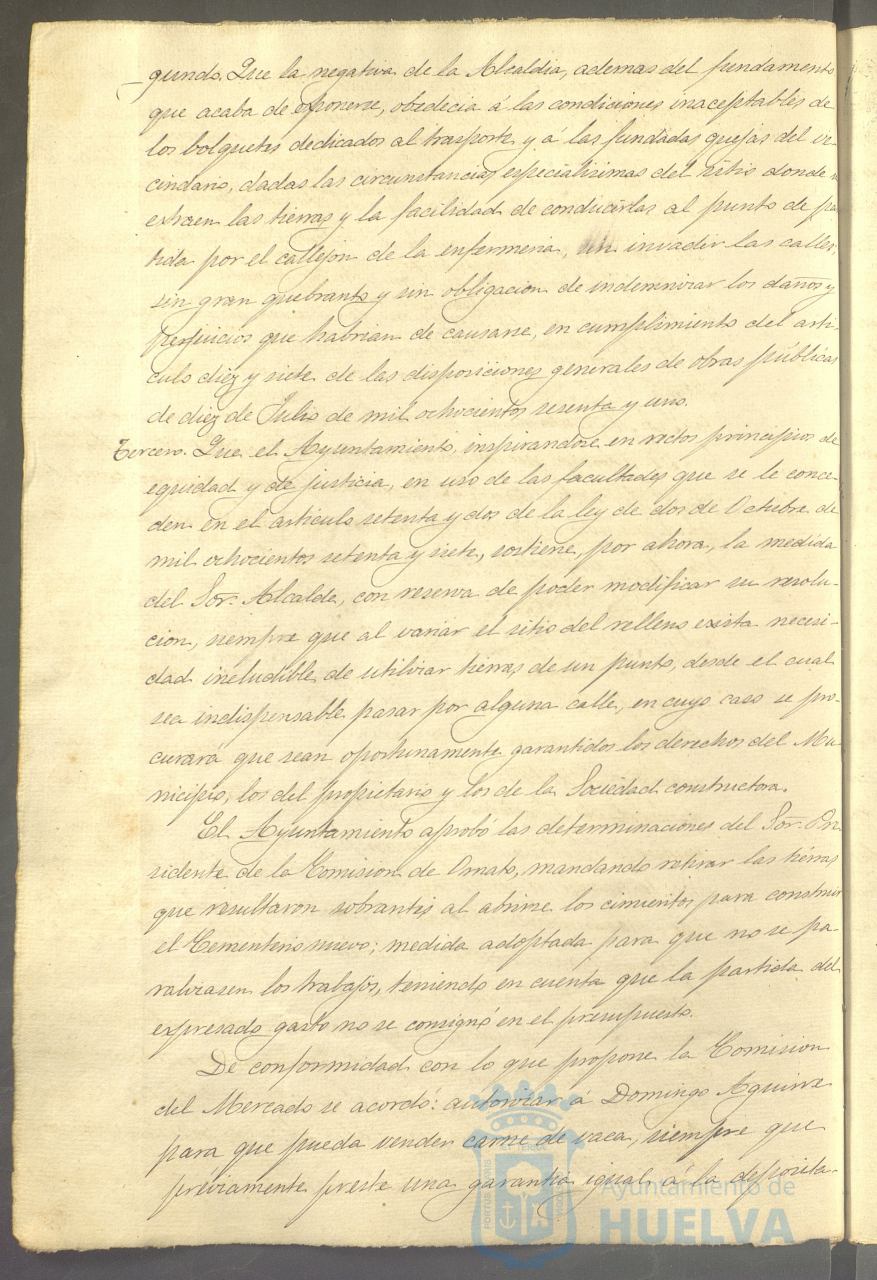 gundo. Que la negativa de la Alcaldia, ademas del fundamento
que acaba de esponerse, obedecia á las condiciones inaceptables de
los bolquetes dedicados al trasporte y á las fundadas quejas del ve-
cindario, dadas las circunstancias especialisimas del sitio donde se
extraen las tierras y la facilidad de conducirlas al punto de par-
tida por el callejon de la enfermeria, sin invadir las calles,
sin gran quebranto y sin obligacion de indemnizar los daños y
perjuicios que habrian de causarse, en cumplimiento del arti-
culo diez y siete de las disposiciones generales de obras públicas
de diez de Julio de mil ochocientos sesenta y uno.
Tercero. Que el Ayuntamiento, inspirandose en rectos principios de
equidad y de justicia, en uso de las facultades que se le conce-
den en el articulo setenta y dos de la ley de dos de Octubre de
mil ochocientos setenta y siete, sostiene, por ahora, la medida
del Sor. Alcalde, con reserva de poder modificar su resolu-
cion, siempre que al variar el sitio del relleno exista necesi-
dad ineludible de utilizar tierras de un punto, desde el cual
sea indispensable pasar por alguna calle, en cuyo caso se pro-
curará que sean oportunamente garantidos los derechos del Mu-
nicipio, los del propietario y los de la Sociedad constructora.
El Ayuntamiento aprobó las determinaciones del Sor. Pre-
sidente de la Comision de Ornato, mandando retirar las tierras
que resultaron sobrantes al abrirse los cimientos para construir
el Cementerio nuevo; medida adoptada para que no se pa-
ralizasen los trabajos, teniendo en cuenta que la partida del
expresado gasto no se consignó en el presupuesto.
De conformidad con lo que propone la Comision
del Mercado se acordó: autorizar á Domingo Aguirre
para que pueda vender carne de vaca, siempre que
préviamente preste una garantia igual á la deposita-
Ayuntamiento de
HUELVA